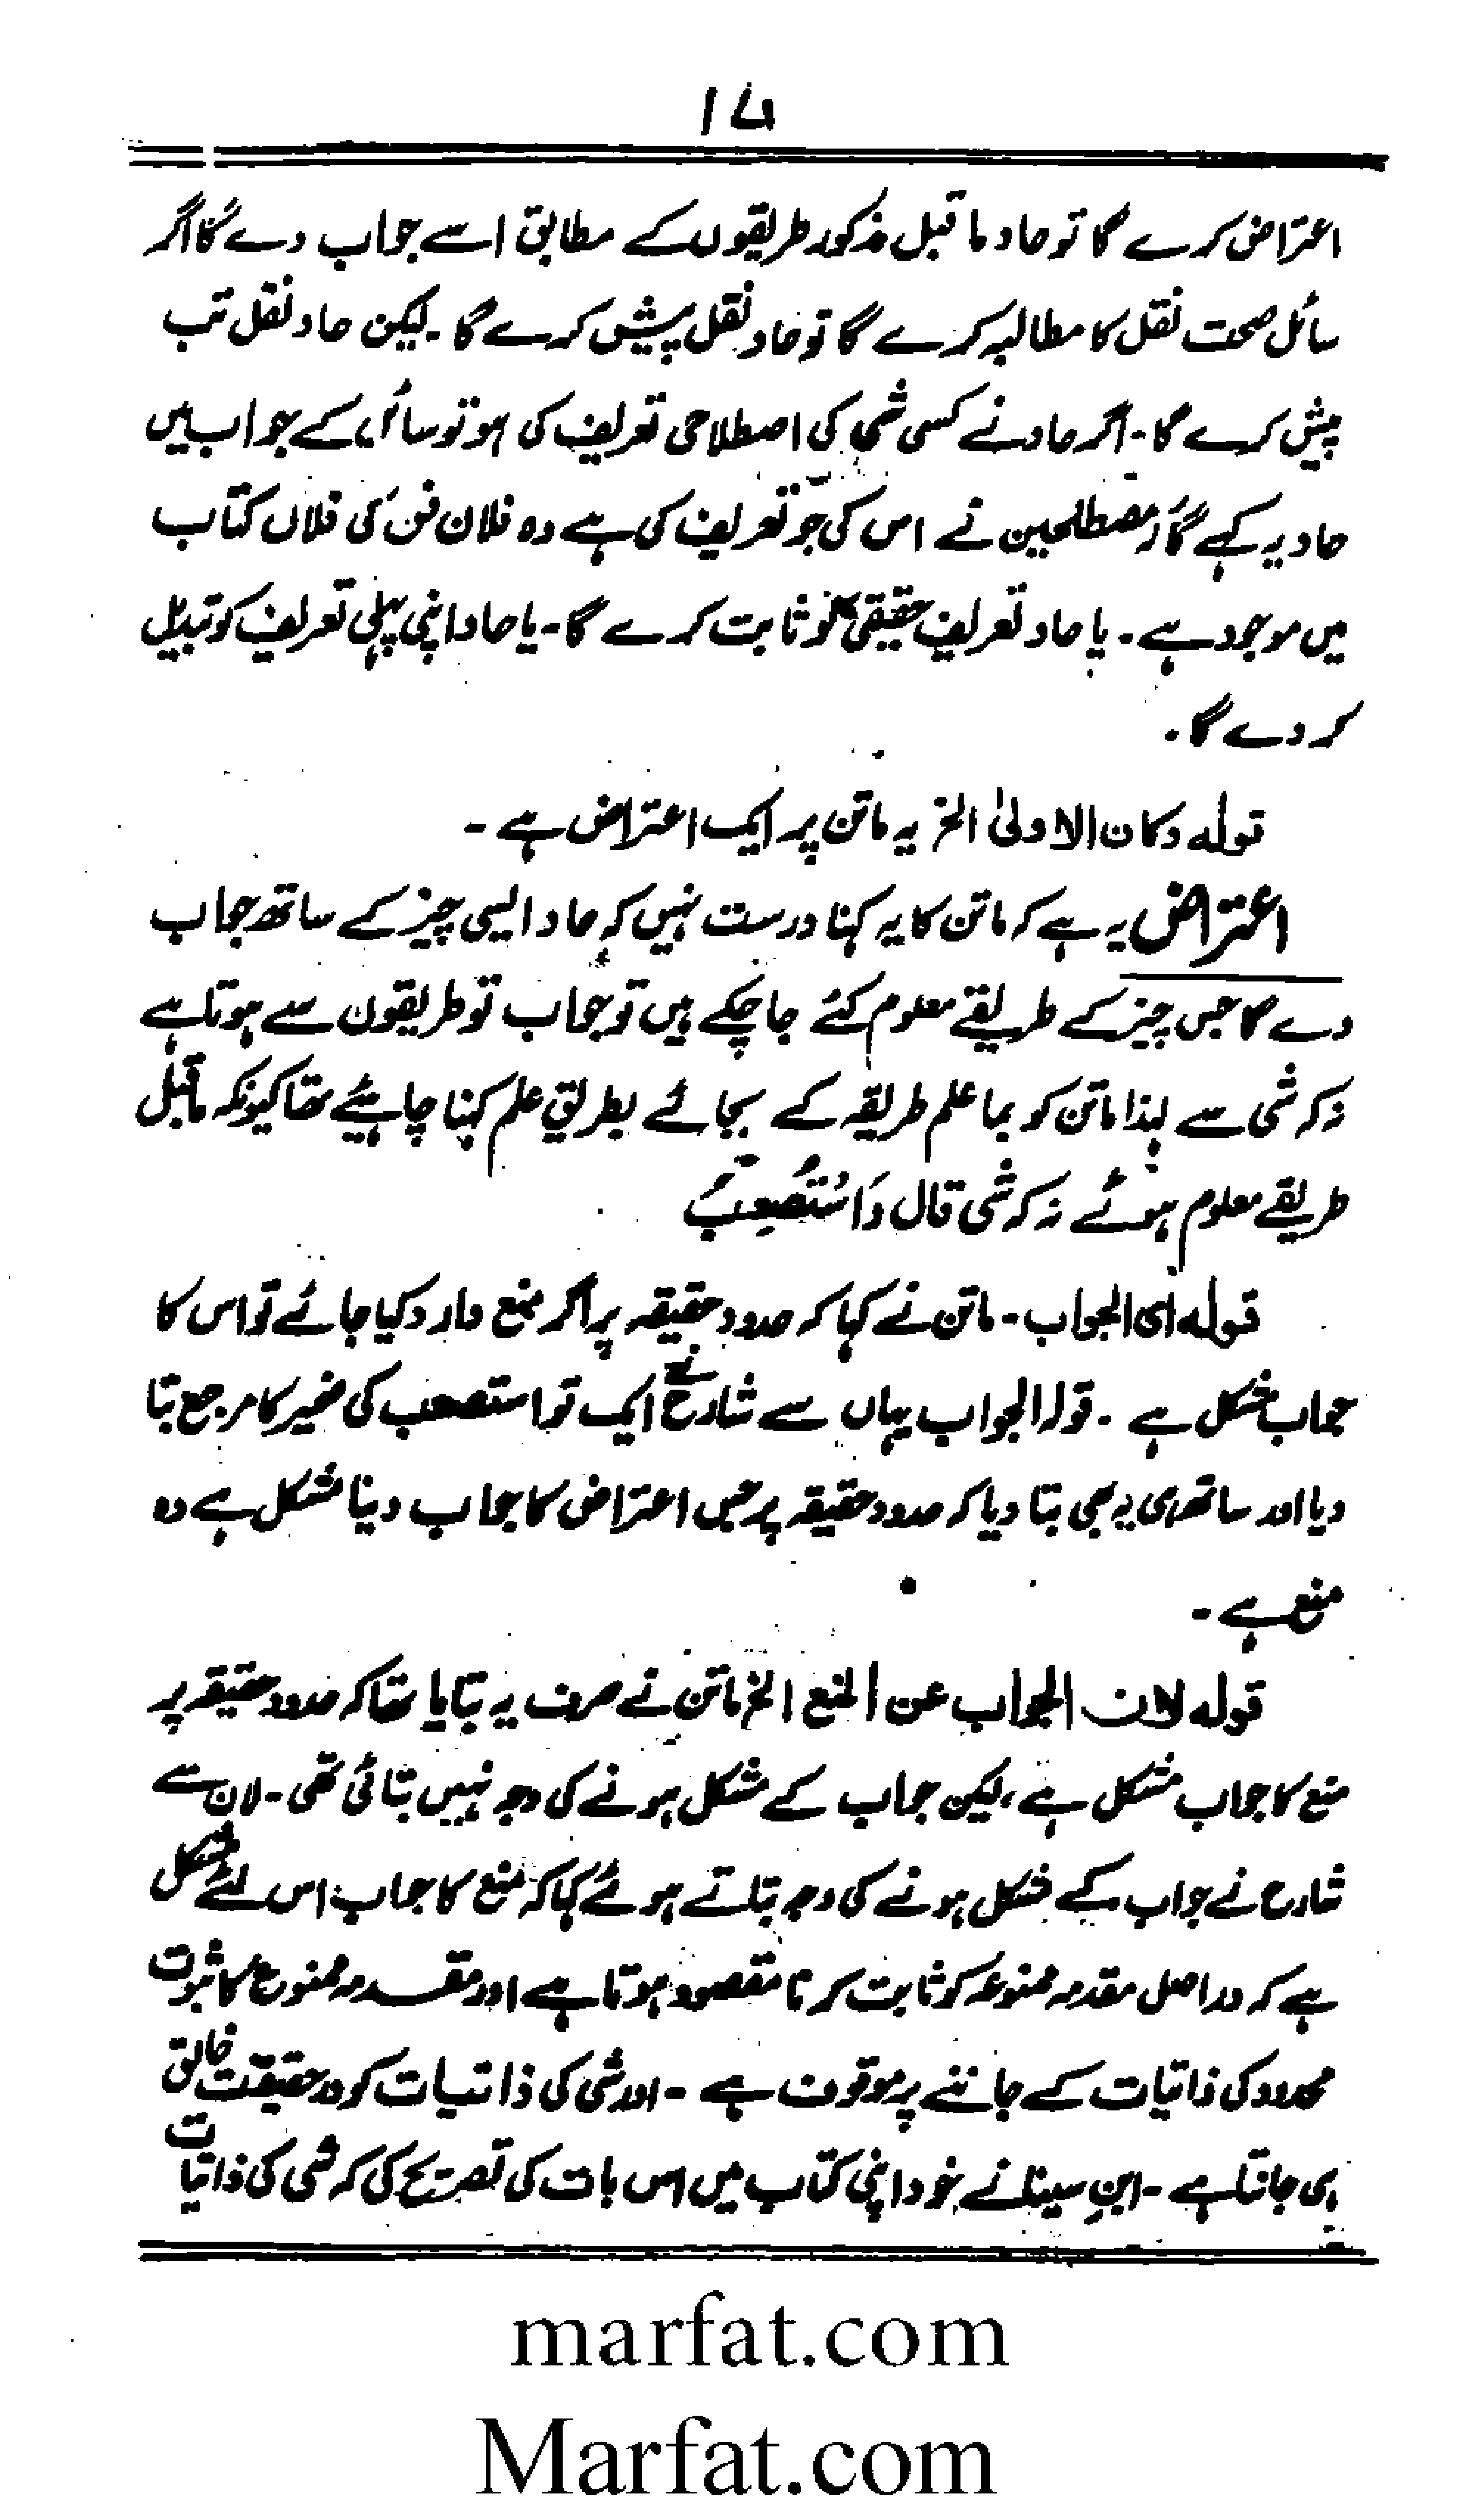 ۱۵
اعتراض کرے گا تو حاد ماقبل مذکور طریقوں کے مطابق اسے جواب دے گا اگر
سائل صحت نقل کا مطالبہ کرے گا تو حاد نقل پیش کرے گا۔ لیکن حاد نقل تب
پیش کرے گا۔ اگر حاد نے کسی شی کی اصطلاحی تعریف کی ہو تو سائل کے جواب میں
حاد یہ کہے گا کہ مصطلحین نے اس کی جو تعریف کی ہے وہ فلان فن کی فلاں کتاب
میں موجود ہے۔ یا حاد تعریف حقیقی کو ثابت کرے گا۔ یا حاد اپنی پہلی تعریف کو تبدیل
کر دے گا۔
قولہ وکان الاولیٰ الخ یہ ماتن پر ایک اعتراض ہے۔
اعتراض یہ ہے کہ ماتن کا یہ کہنا درست نہیں کہ حاد ایسی چیز کے ساتھ جواب
دے گا جس چیز کے طریقے معلوم کئے جا چکے ہیں تو جواب تو طریقوں سے ہوتا ہے
نہ کہ شی سے لہذا ماتن کو بما علم طریقہ کے بجائے بطریق علم کہنا چاہیئے تھا کیونکہ ماقبل
طریقے معلوم ہوئے نہ کہ شی قال وَاسْتُصْعِبَ
قولہ ای الجواب۔ ماتن نے کہا کہ حدود حقیقیہ پر اگر منع وارد کیا جائے تو اس کا
جواب مشکل ہے۔ قولہ الجواب یہاں سے شارح نے ایک تو استصعب کی ضمیر کا مرجع بتا
دیا اور ساتھ ہی یہ بھی بتا دیا کہ حدود حقیقیہ پر جس اعتراض کا جواب دینا مشکل ہے وہ
منع ہے۔
قولہ لان الجواب عن المنع الخ ماتن نے صرف یہ بتایا تھا کہ حدود حقیقیہ پر
منع کا جواب مشکل ہے، لیکن جواب کے مشکل ہونے کی وجہ نہیں بتائی تھی۔ لان سے
شارح نے جواب کے مشکل ہونے کی وجہ بتاتے ہوئے کہا کہ منع کا جواب اس لئے مشکل
ہے کہ دراصل مقدمہ ممنوعہ کو ثابت کرنا مقصود ہوتا ہے اور مقدمہ ممنوعہ کا ثبوت
محدود کی ذاتیات کے جاننے پر موقوف ہے۔ اور شی کی ذاتیات کو در حقیقت خالق
ہی جانتا ہے۔ ابن سینا نے خود اپنی کتاب میں اس بات کی تصریح کی کہ شی کی ذاتیات
marfat.com
Marfat.com